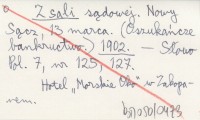 Z sali sądowej. Nowy
Sącz, 13 marca. (Oszukańcze
bankructwo.) 1902. — Słowo
Pol. 7, nr 125, 127.
Hotel „Morskie Oko” w Zakopa-
nem.